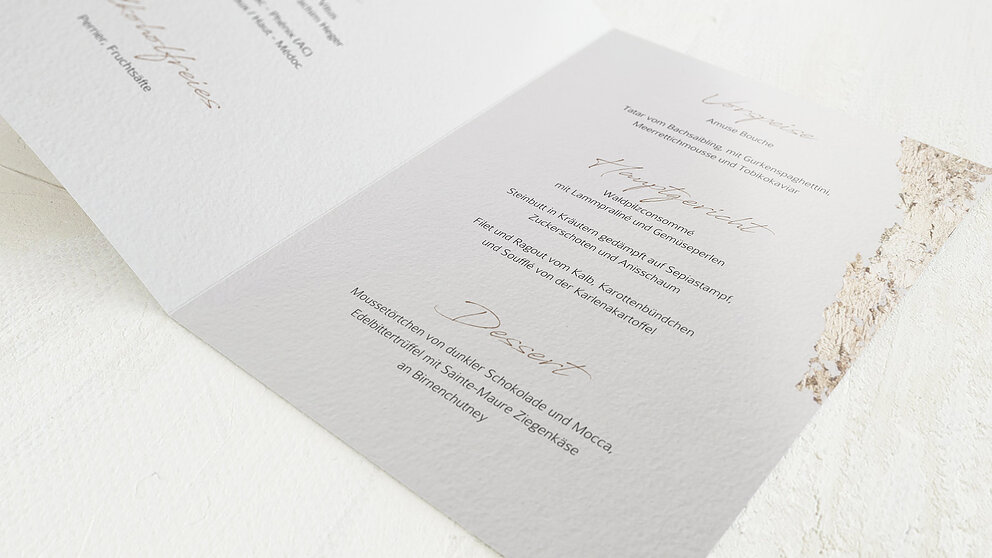 Heger
- Phélix (AC)
/ Haut - Médoc
Perrier, Fruchtsäfte
Vorspeise
Amuse Bouche
Tatar vom Bachsaibling, mit Gurkenspaghettini,
Meerrettichmousse und Tobikokaviar
Hauptgericht
Waldpilzconsommé
mit Lammpraliné und Gemüseperlen
Steinbutt in Kräutern gedämpft auf Sepiastampf,
Zuckerschoten und Anisschaum
Filet und Ragout vom Kalb, Karottenbündchen
und Soufflé von der Karlenakartoffel
Dessert
Moussetörtchen von dunkler Schokolade und Mocca,
Edelbittertrüffel mit Sainte-Maure Ziegenkäse
an Birnenchutney